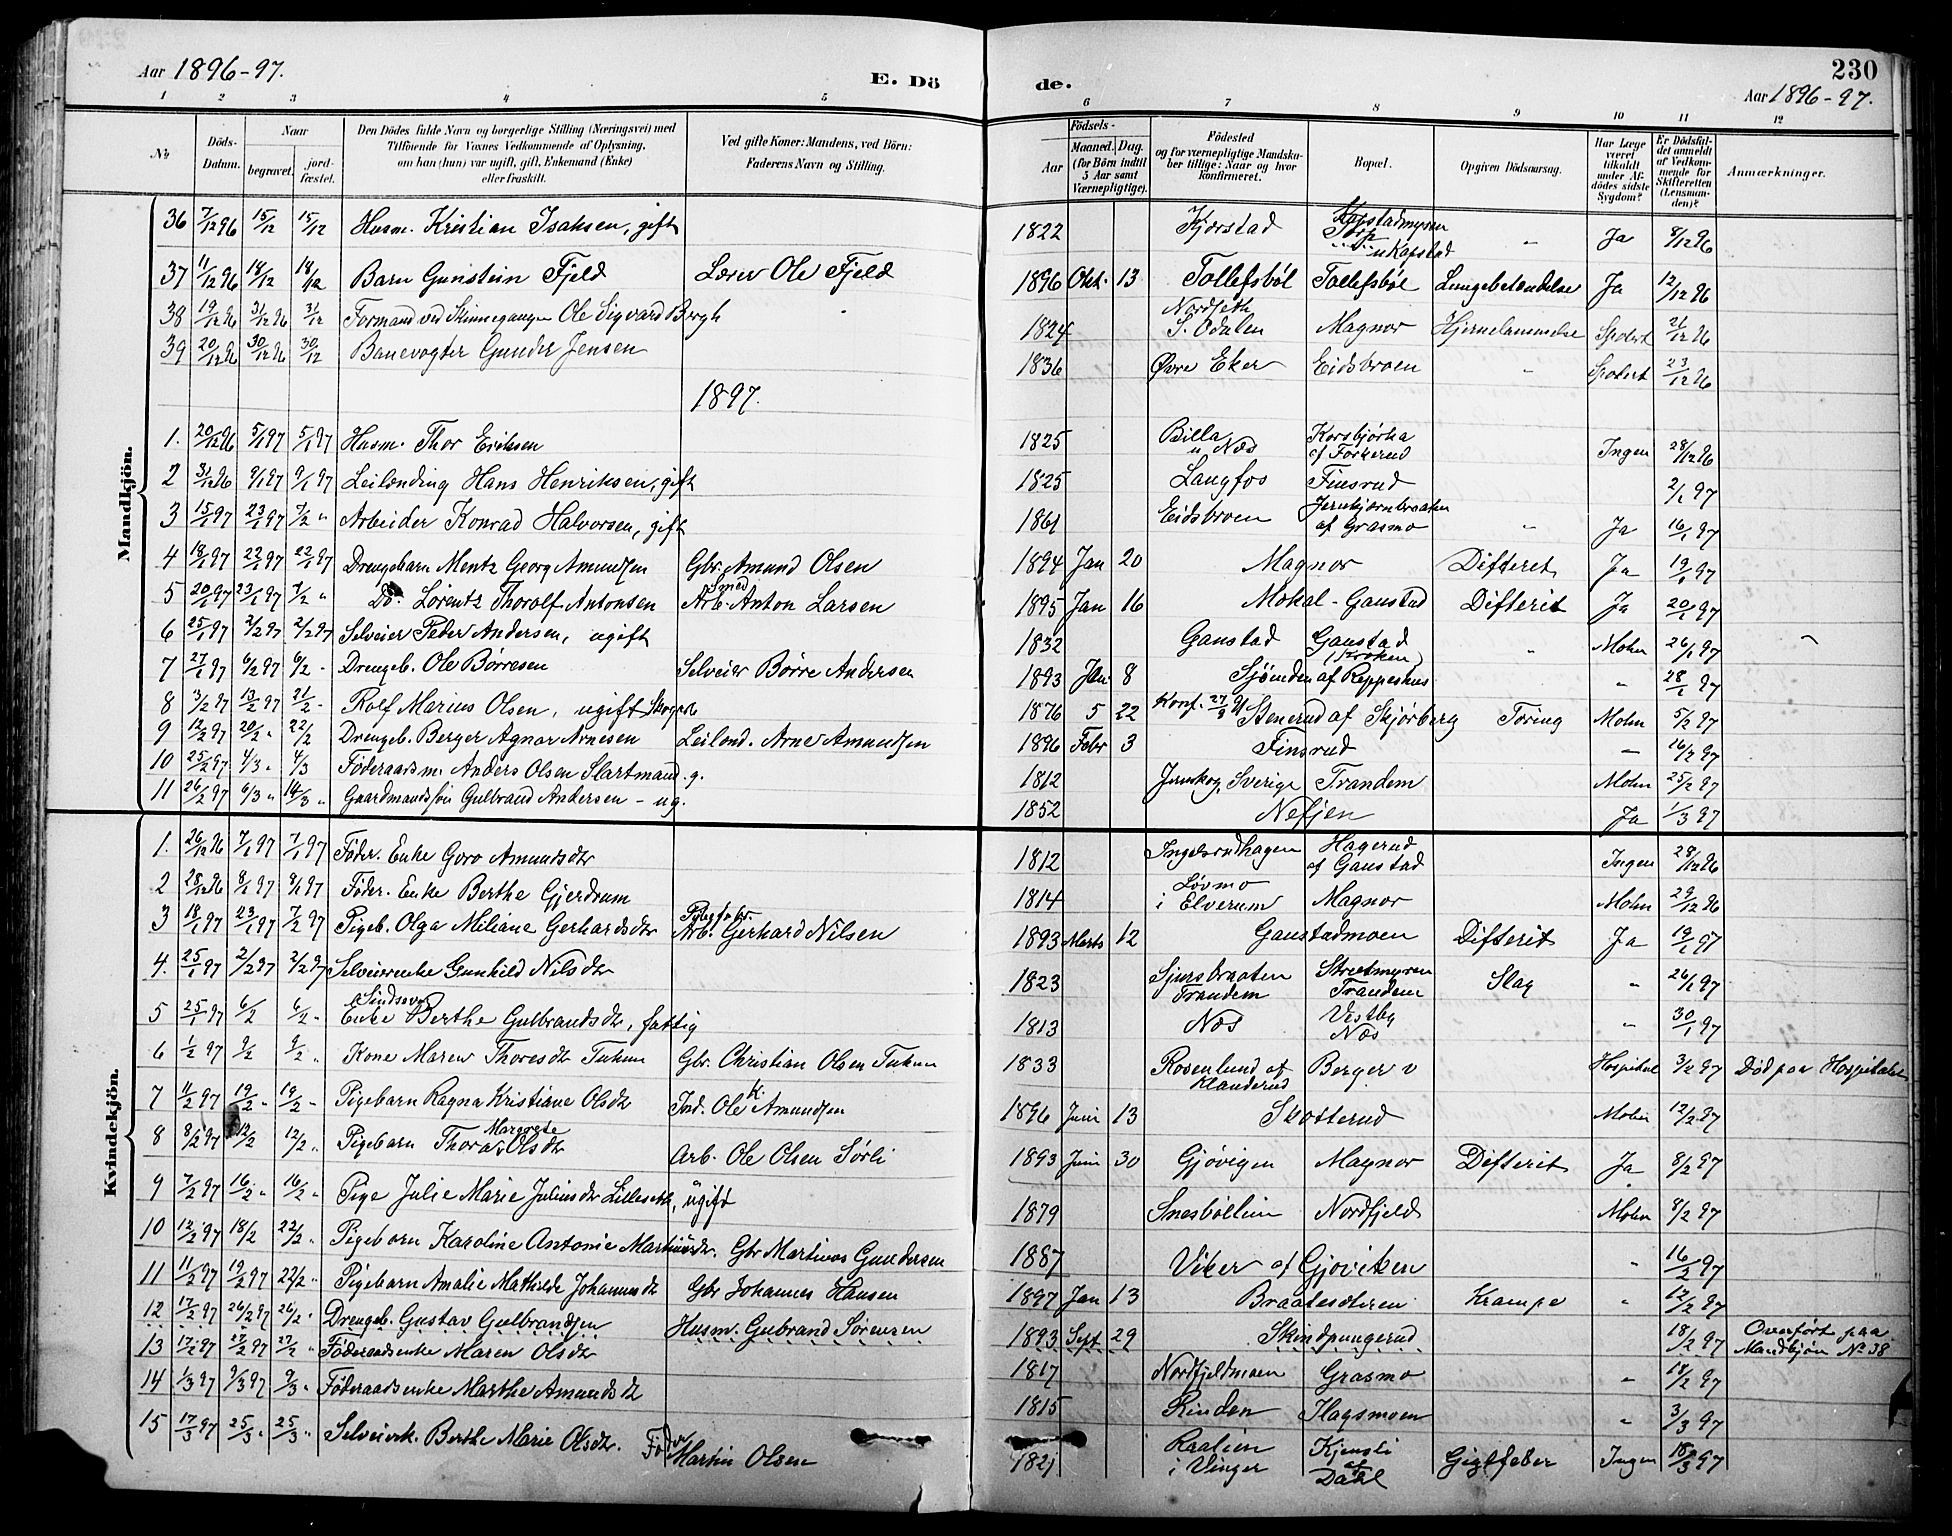 Aar 1896-97.
E. Dö
de.
230
Aar 1896-97.
1 2 3 4 5 6 7 8 9 10 11 12
No
Döds-Datum.
Naar
begravet.
jord-fæstet.
Den Dödes fulde Navn og borgerlige Stilling (Næringsvei) med
Tilföiende for Voxnes Vedkommende af Oplysning,
om han (hun) var ugift, gift, Enkemand (Enke)
eller fraskilt.
Ved gifte Koner: Mandens, ved Börn:
Faderens Navn og Stilling.
Födsels-
Aar
Maaned. Dag.
(for Börn indtil
5 Aar samt
Værnepligtige).
Födested
og for værnepligtige Mandska-
ber tillige: Naar og hvor
konfirmeret.
Bopæl.
Opgiven Dödsaarsag.
Har Læge
været
tilkaldt
under Af-
dödes sidste
Sygdom?
Er Dödsfal-
det anmeldt
af Vedkom-
mende for
Skifteretten
(Lensman-
den)?
Anmærkninger.
Mandkjön.
36 7/12 96 15/12 15/12 Husm. Kristian Isaksen, gift 1822 Kjørstad " Ja 8/12 96
37 11/12 96 18/12 18/12 Barn Gunstein Fjeld Lærer Ole Fjeld 1896 Okt. 13 Tollefsbøl Tollefsbøl Lungebetændelse Ja 12/12 96
38 19/12 96 31/12 96 31/12 Formand ved Skinnegangen Ole Sigvard Bergh 1824 S. Odalen Magnor 21/12 96
39 20/12 96 30/12 96 30/12 Banevogter Gunder Jensen 1836 Øvre Eker Eidsbroen " 23/12 96
1897.
1. 20/12 96 5/1 97 5/1 97 Husm. Thor Eriksen 1825 Billa u Næs Korsbjørka af Forkerud Ingen 28/12 96
2 31/12 96 9/1 97 9/1 97 Leilænding Hans Henriksen, gift 1825 Langfos Finsrud 2/1 97
3 15/1 97 23/1 97 7/2 " Arbeider Konrad Halvorsen, gift 1861 Eidsbroen af Grasmo " Ja 16/1 97
4 18/1 97 22/1 97 22/1 97 Drengebarn Mentz Georg Amundsen Gbr. Amund Olsen 1894 Jan 20 Magnor Difterit Ja 19/1 97
5 20/1 97 23/1 97 7/2 " Do. Lorentz Thorolf Antonsen Arb. Smed Anton Larsen 1895 Jan 16 Mokal - Gaustad Difterit Ja 20/1 97
6 25/1 97 2/2 97 2/2 97 Selveier Peder Andersen, ugift 1832 Gaustad Gaustad (Kroken) " Molin 26/1 97
7 27/1 97 6/2 97 6/2 - Drengeb. Ole Børresen Selveier Børre Andersen 1893 Jan. 8 Sjøenden af Reppeshus " 28/1 97
8 3/2 97 13/2 97 21/2 - Rolf Marius Olsen, ugift 1876 5 22 Konf. Stenerud af Skjørberg Tæring Molin 5/2 97
9 12/2 97 20/2 " 22/2 Drengeb. Berger Agnar Arnesen Leilænd. Arne Amundsen 1896 Febr 3 Finsrud " 16/2 97
10 25/2 97. 4/3 " 4/3 Føderaadsm. Anders Olsen Slartmand. g. 1812 Jernskog, Sverige Trandem Molin 25/2 97
11 26/2 97 6/3 " 14/3 " Gaardmandssøn Gulbrand Andersen - ug. 1852 Nefjen Ja 1/3 97
Kvindekjön.
1. 26/12 96 7/1 97 7/1 97 Føder. Enke Goro Amundsdtr 1812 Ingelsrudhagen Hagerud af Gaustad Ingen 28/12 96
2 28/12 96 8/1 97 8/1 97 Føder. Enke Berthe Gjerdrum 1814 Løvmo i Elverum Magnor Molin 29/12 96
3 18/1 97 23/1 97 7/2 97 Pigeb. Olga Miliane Gerhardsdtr Arb. Gerhard Nilsen 1893 Marts 12 Gaustadmoen Difterit Ja 19/1 97
4. 25/1 97 2/2 97 2/2 97 Selveierenke Gunhild Nilsdtr 1823 Sjursbraaten Trandem Trandem Slag " 26/1 97
5 25/1 97 6/2 6/2 - Sindssvag Enke Berthe Gulbrandsdtr, fattig 1813 Næs Vestby Næs " 30/1 97
6 1/2 97 9/2 9/2 " Kone Maren Thoresdtr Tukun Gbr. Christian Olsen Tukun 1833 Rosenlund af Klanderud Berger v Hospital 3/2 97 Død paa Hospitalet
7 11/2 97 19/2 - 19/2 - Pigebarn Ragna Kristiane Olsdtr Ind. Ole Kr. Amundsen 1896 Juni 13 Skotterud Molin 12/2 97
8 8/2 97 12/2 12/2 " Pigebarn Thora Margrete Olsdtr Arb. Ole Olsen Sørli 1893 Juni 30 Gjøvigen Magnor Difterit Ja 8/2 97
9 7/2 97 16/2 " 16/2 " Pige Julie Marie Juliusdtr Lilleseth, ugift 1879 Snesbøllien Nordfjeld Molin 8/2 97
10 12/2 97 18/2 22/2 " Pigebarn Karoline Antonie Martinusdtr. Gbr Martinus Gundersen 1887 Viker af Gjøviken " 16/2 97
11 11/2 97 19/2 97 22/2 " Pigebarn Amalie Mathilde Johannesdtr Gbr Johannes Hansen 1897 Jan 13 Braatesæteren Krampe " 12/2 97
12 17/2 97 26/2 97 26/2 " Drengeb. Gustav Gulbrandsen Husm. Gulbrand Sørensen 1893 Sept 29 Skindpungerud 18/2 97 Overført paa Mandkjøn No 38
13 17/2 97 27/2 97 27/2 " Føderaadsenke Maren Olsdtr 1817 Nordfjeldmoen Grasmo " 18/2 97
14 1/3 97 9/3 97 9/3 " Føderaadsenke Marthe Amundsdtr 1815 Rinden Hagsmoen " 3/3 97
15 17/3 97 25/3 " 25/3 " Selveierk. Berthe Marie Olsdtr. Føder Martin Olsen 1821 Raalien i Vinger Kjensli af Dahl Gigtfeber Ingen 18/3 97